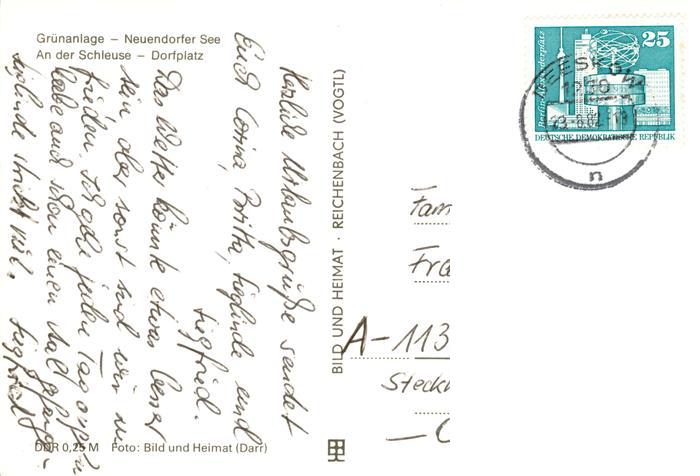 Grünanlage – Neuendorfer See
An der Schleuse – Dorfplatz
Herzliche Urlaubsgrüße sendet
Euch Corina, Britta, Sieglinde und
Siegfried.
Das Wetter könnte etwas besser
sein aber sonst sind wir zu
frieden. Ich gehe jeden Tag angeln
habe auch schon einen Aal gefangen
Sieglinde strickt viel. Siegfried
DDR 0,25 M Foto: Bild und Heimat (Darr)
BILD UND HEIMAT · REICHENBACH (VOGTL)
25
Berlin-Alexanderplatz
DEUTSCHE DEMOKRATISCHE REPUBLIK
BEESKOW
1230
n
Fam
Fra
A-113